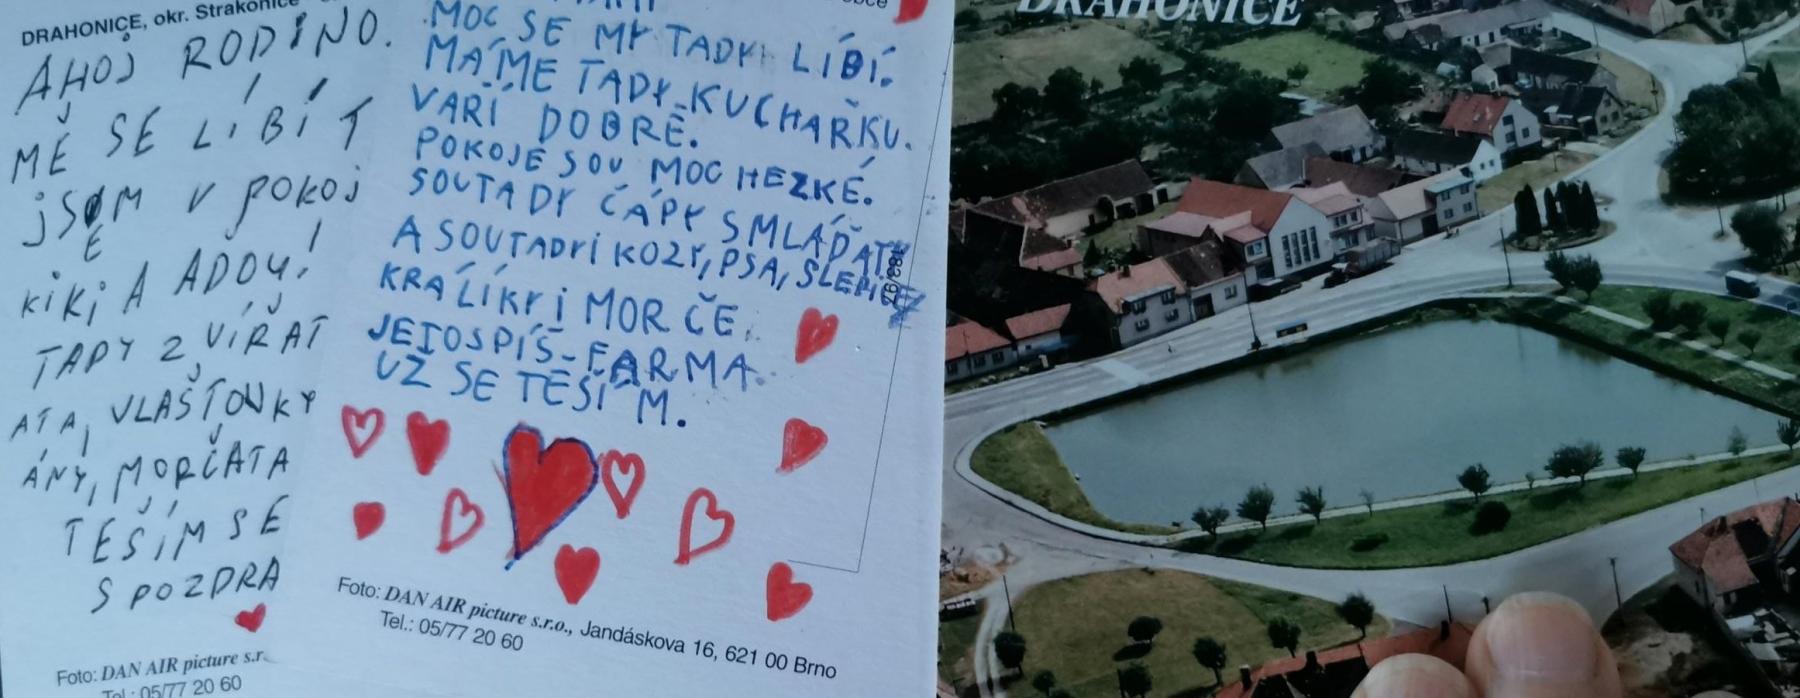 DRAHONICE, okr. Strakonice
AHOJ RODINO.
MĚ SE LÍBÍ T
JSEM V POKOJ
KIKI A ADOU!
TADY ZVÍŘAT
ATA, VLAŠŤOVKY
ÁNY, MORČATA
TĚŠÍM SE
S POZDRA
Foto: DAN AIR picture s.r.
Tel.: 05/77 20 60
obce
MOC SE MY TADY LÍBÍ.
MÁME TADY KUCHAŘKU.
VAŘÍ DOBŘE.
POKOJE SOU MOC HEZKÉ.
SOUTADY ČÁPY SMLÁĎATY
A SOUTADYI KOZY, PSA, SLEPICE
KRÁLÍKY I MORČE.
JETOSPÍŠ-FARMA.
UŽ SE TĚŠÍM.
Foto: DAN AIR picture s.r.o., Jandáskova 16, 621 00 Brno
Tel.: 05/77 20 60
DRAHONICE